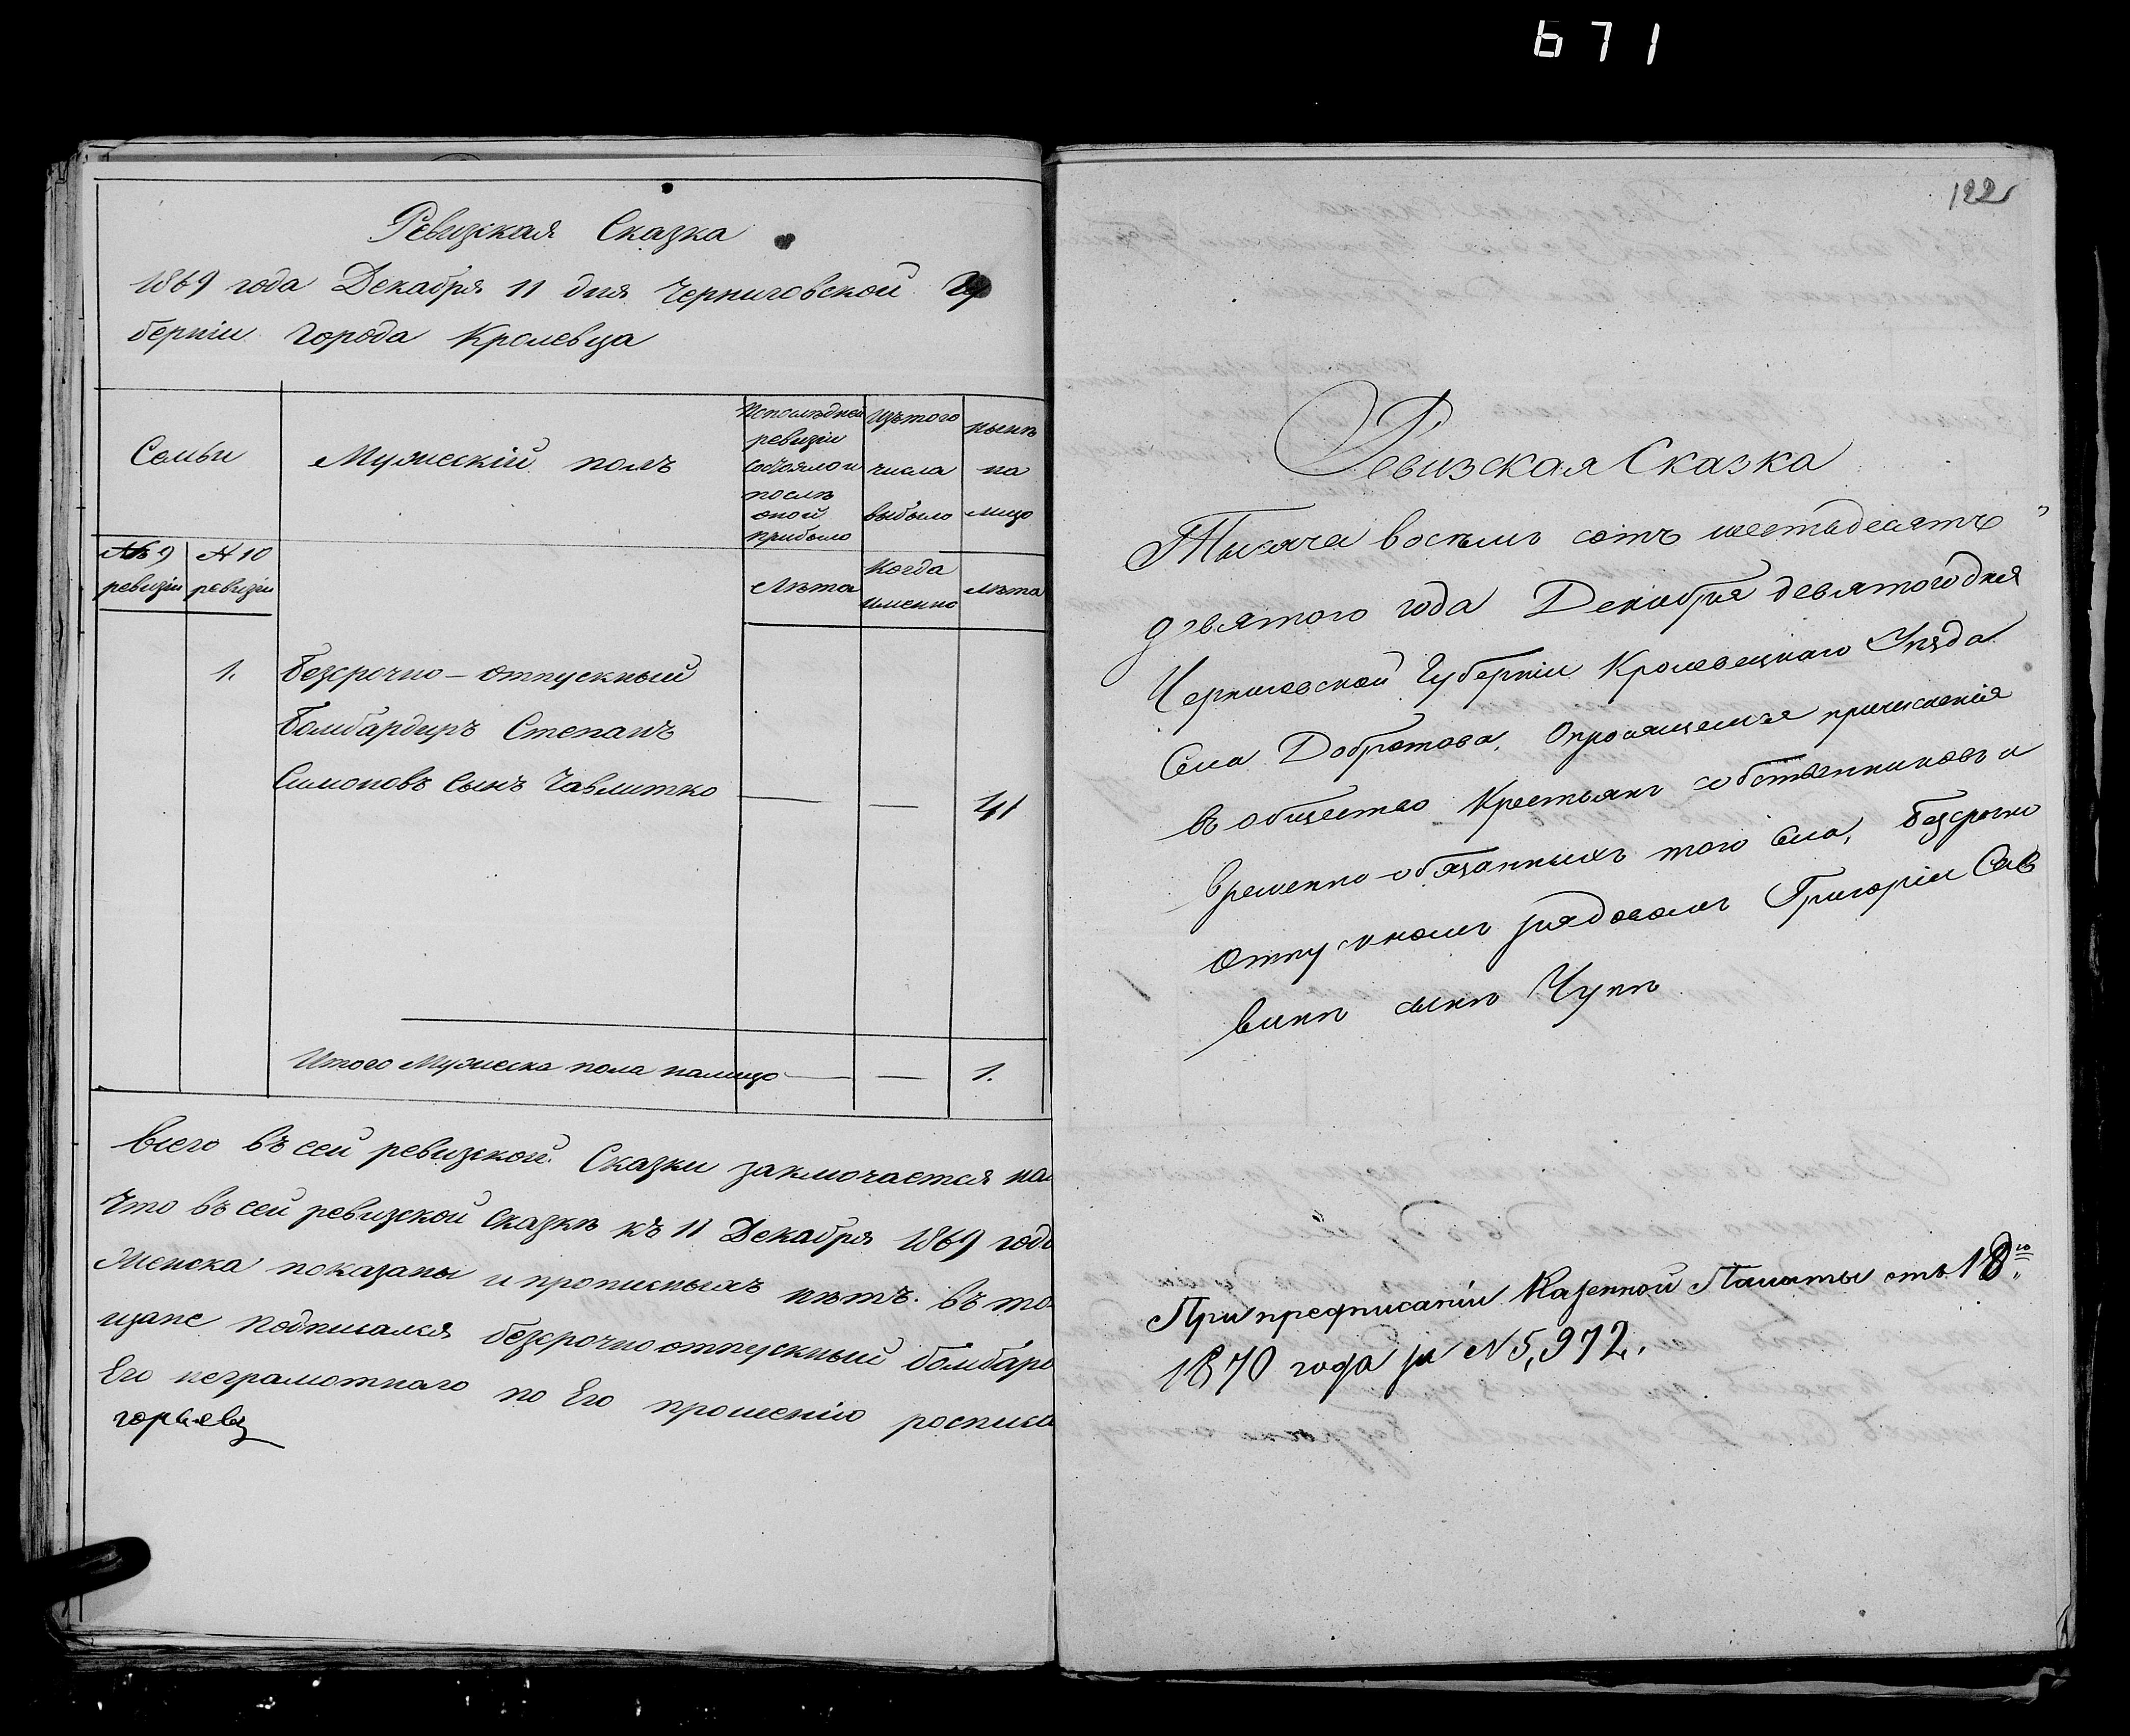 671
Ревизкая Сказка
1869 года Декабря 11 дня Черниговской Гу
берніи города Кролевца
Семьи
Мужескій полъ
Исполѣдней ревизіи состояло и послѣ оной прибыло
Изътого числа выбыло
нынѣ на лицо
№ 9 ревизіи
№ 10 ревизіи
Лѣта
Когда именно
Лѣта
1. Безсрочно-отпускный
Бомбардиръ Степанъ
Симоновъ Сынъ Чавлитко — — 41
Итого Мужеска пола налицо — — 1.
Всего въ сей ревизской Сказки заключается на
Что въ сей ревизской Сказкѣ къ 11 Декабря 1869 года
Женска показаны и прописныхъ нѣтъ. въ то
щане подписался безсрочноотпускный бомбард
Его неграмотнаго по Его прошенію росписа
горьевъ
122
Ревизская Сказка
Тысяча восемь сотъ шестьдесятъ
девятого года Декабря девятого дня
Черниговской Губерніи Кролевецкаго Уѣзда
Села Добротова, Опросящемся причисленія
въ общество Крестьянъ собственниковъ и
временно-обязанныхъ того села, безсрочно
отпускномъ рядовомъ Григоріи Сав
винѣ сынѣ Чупѣ
При предписаніи Казенной Палаты отъ 18го
1870 года за №5,972.